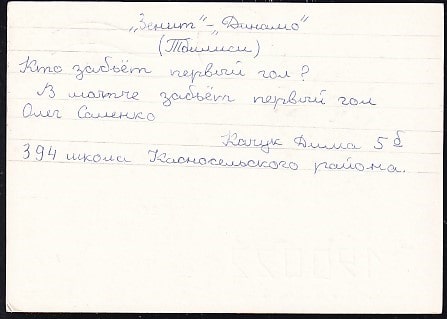 "Зенит" - "Динамо"
(Тбилиси)
Кто забьёт первый гол?
В матче забьёт первый гол
Олег Саленко
Качук Дима 5б
394 школа Касносельского района.